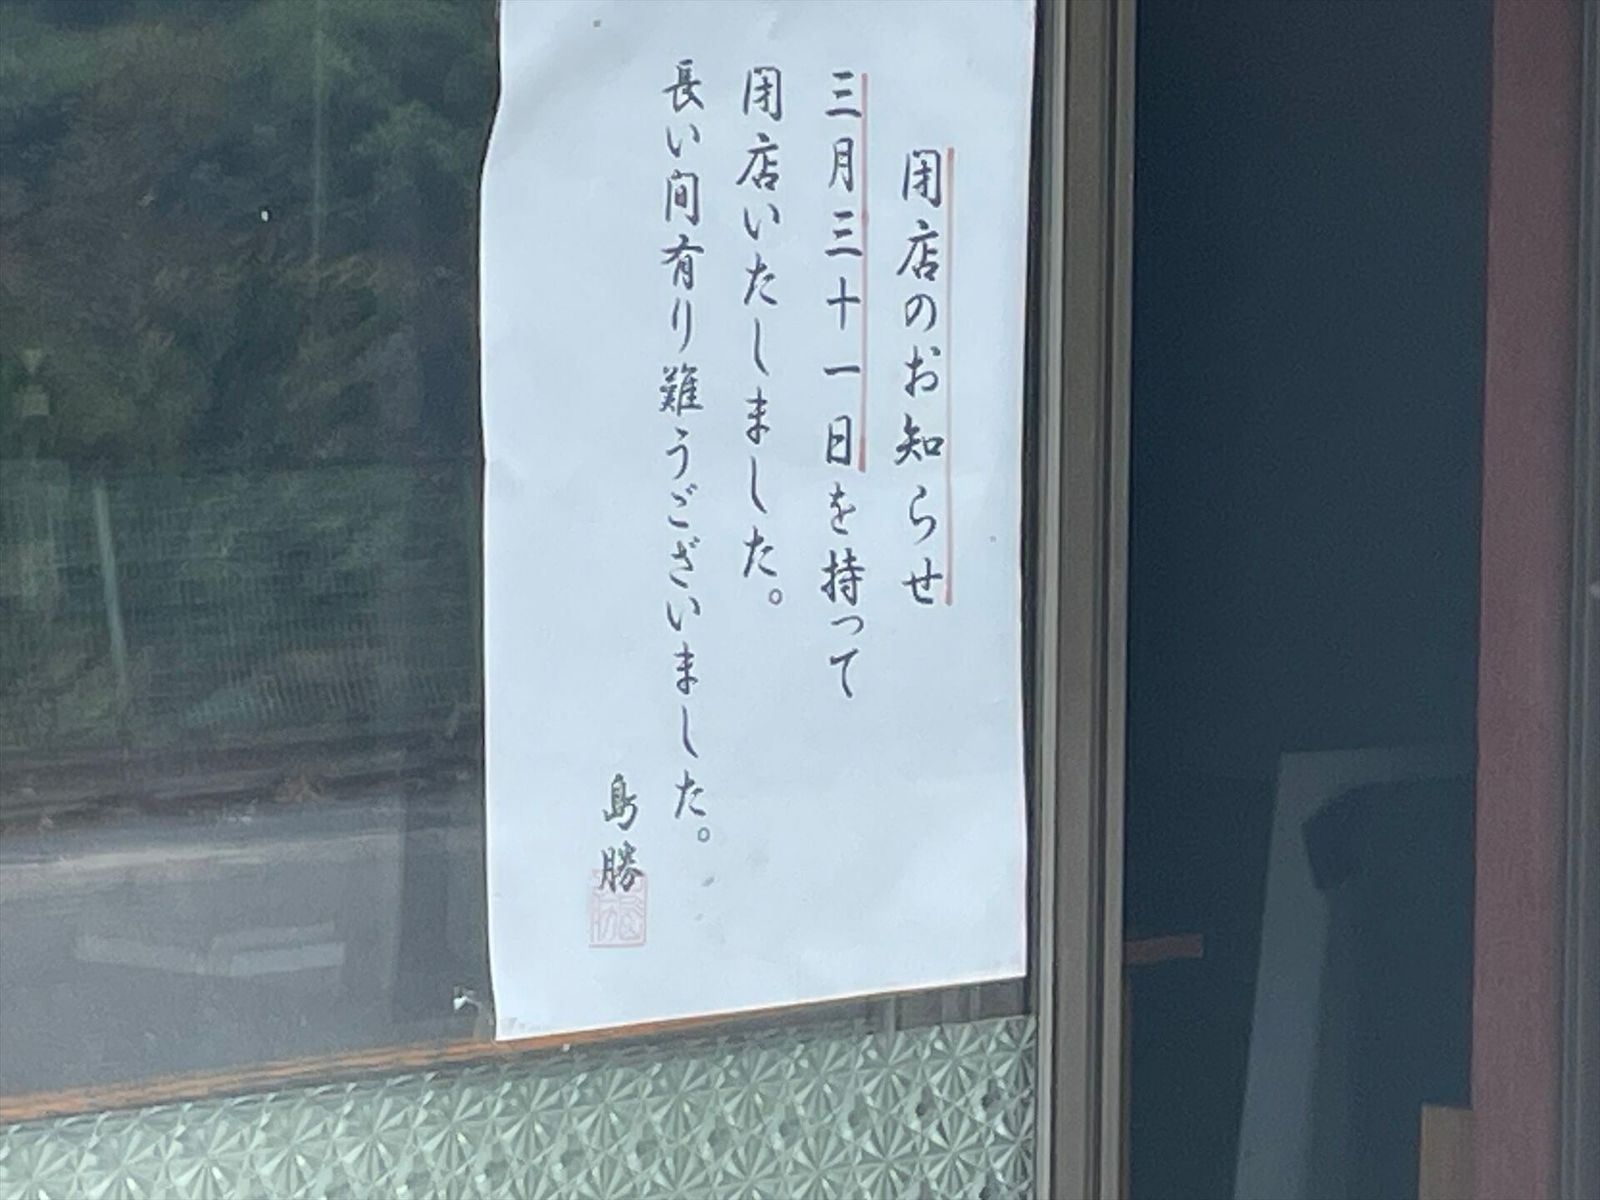 閉店のお知らせ
三月三十一日を持って
閉店いたしました。
長い間有り難うございました。
島勝